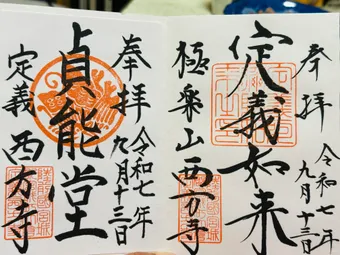 奉拝
令和七年
九月十三日
定義如来
極楽山西方寺
奉拝
令和七年
九月十三日
貞能堂
定義
西方寺